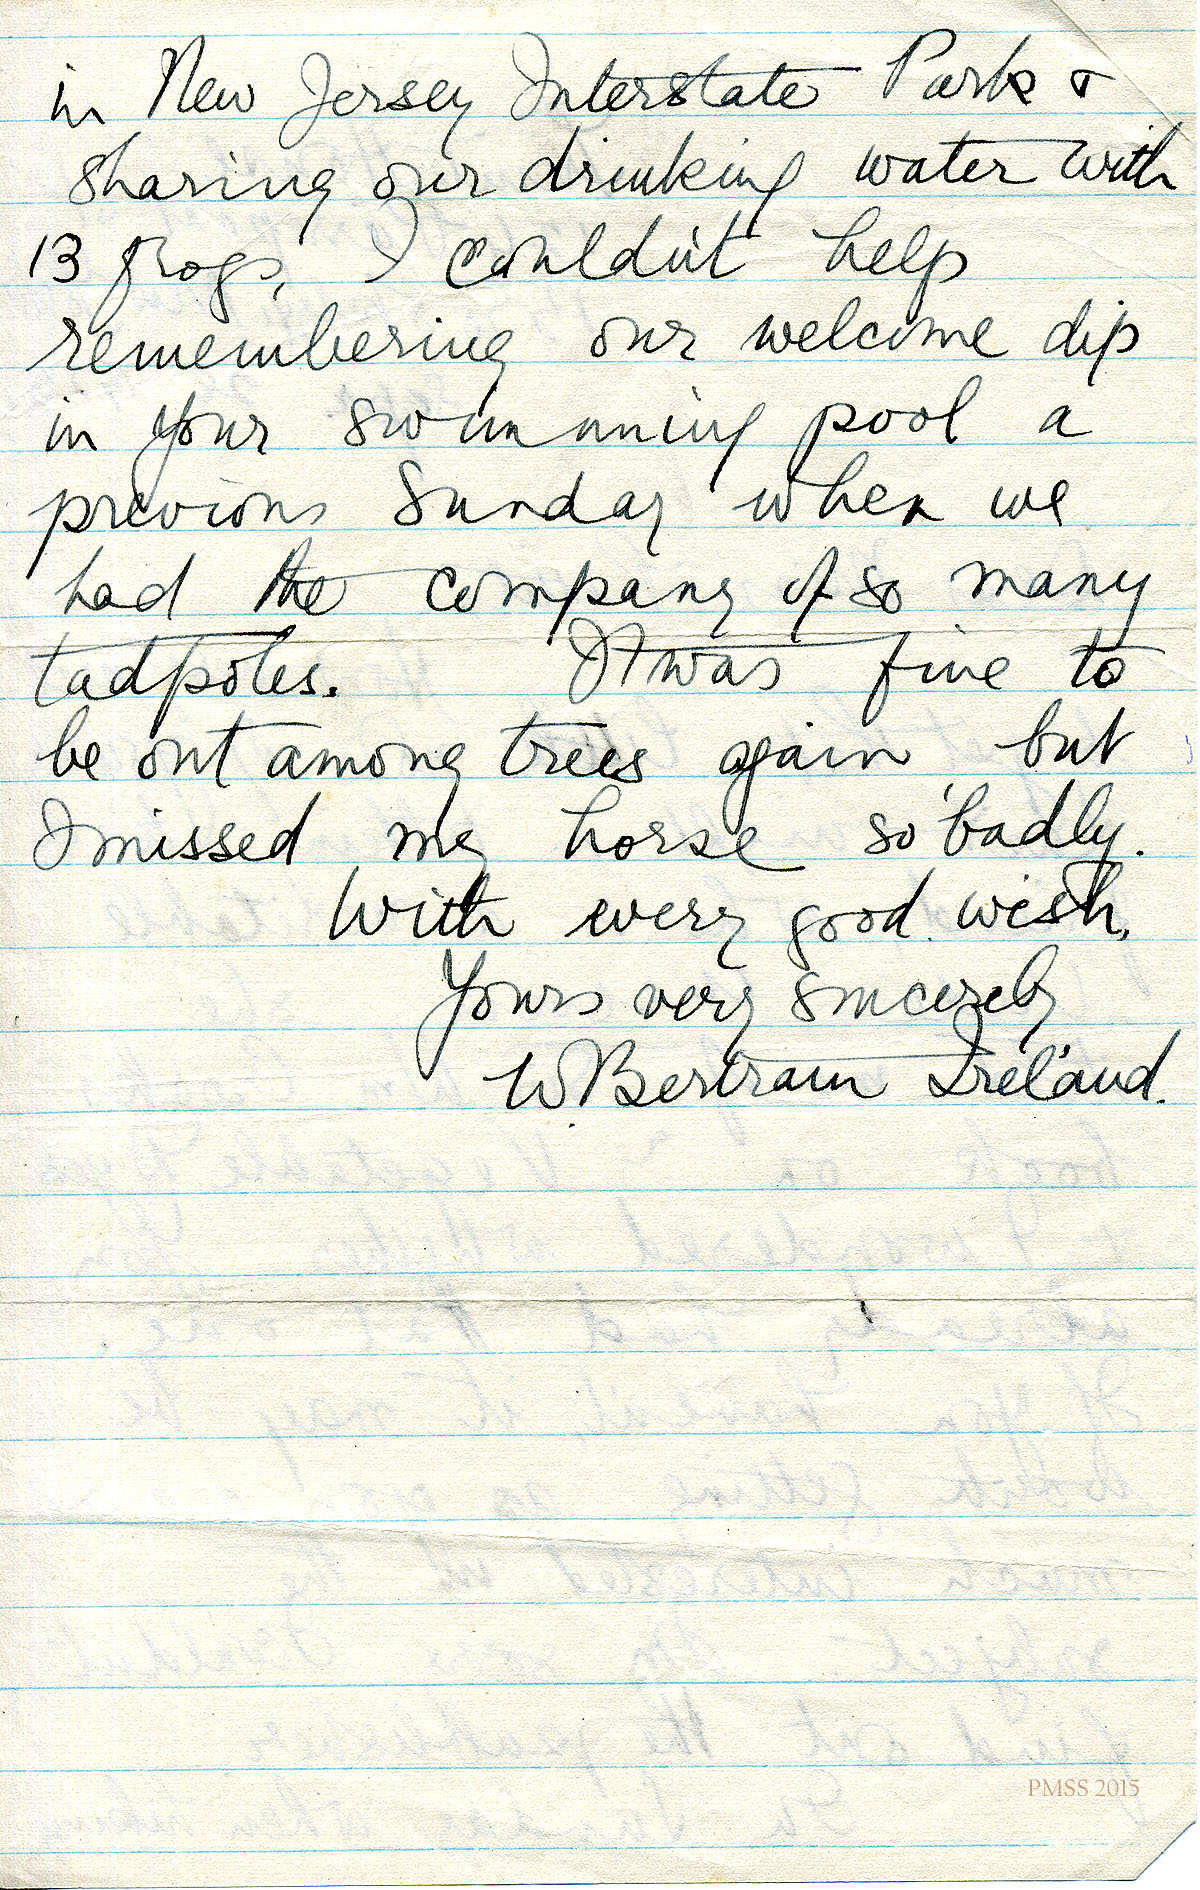 in New Jersey Interstate Park &
sharing our drinking water with
13 frogs, I couldn't help
remembering our welcome dip
in your swimming pool a
previous Sunday when we
had the company of so many
tadpoles. It was fine to
be out among trees again but
I missed my horse so badly.
With every good wish,
Yours very sincerely
W. Bertram Ireland.
PMSS 2015